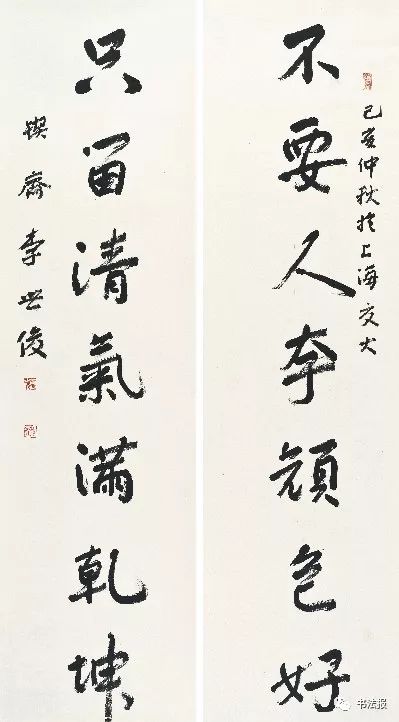 不要人夸顔色好
己亥仲秋於上海交大
只留清氣滿乾坤
鍥齋李世俊
书法报